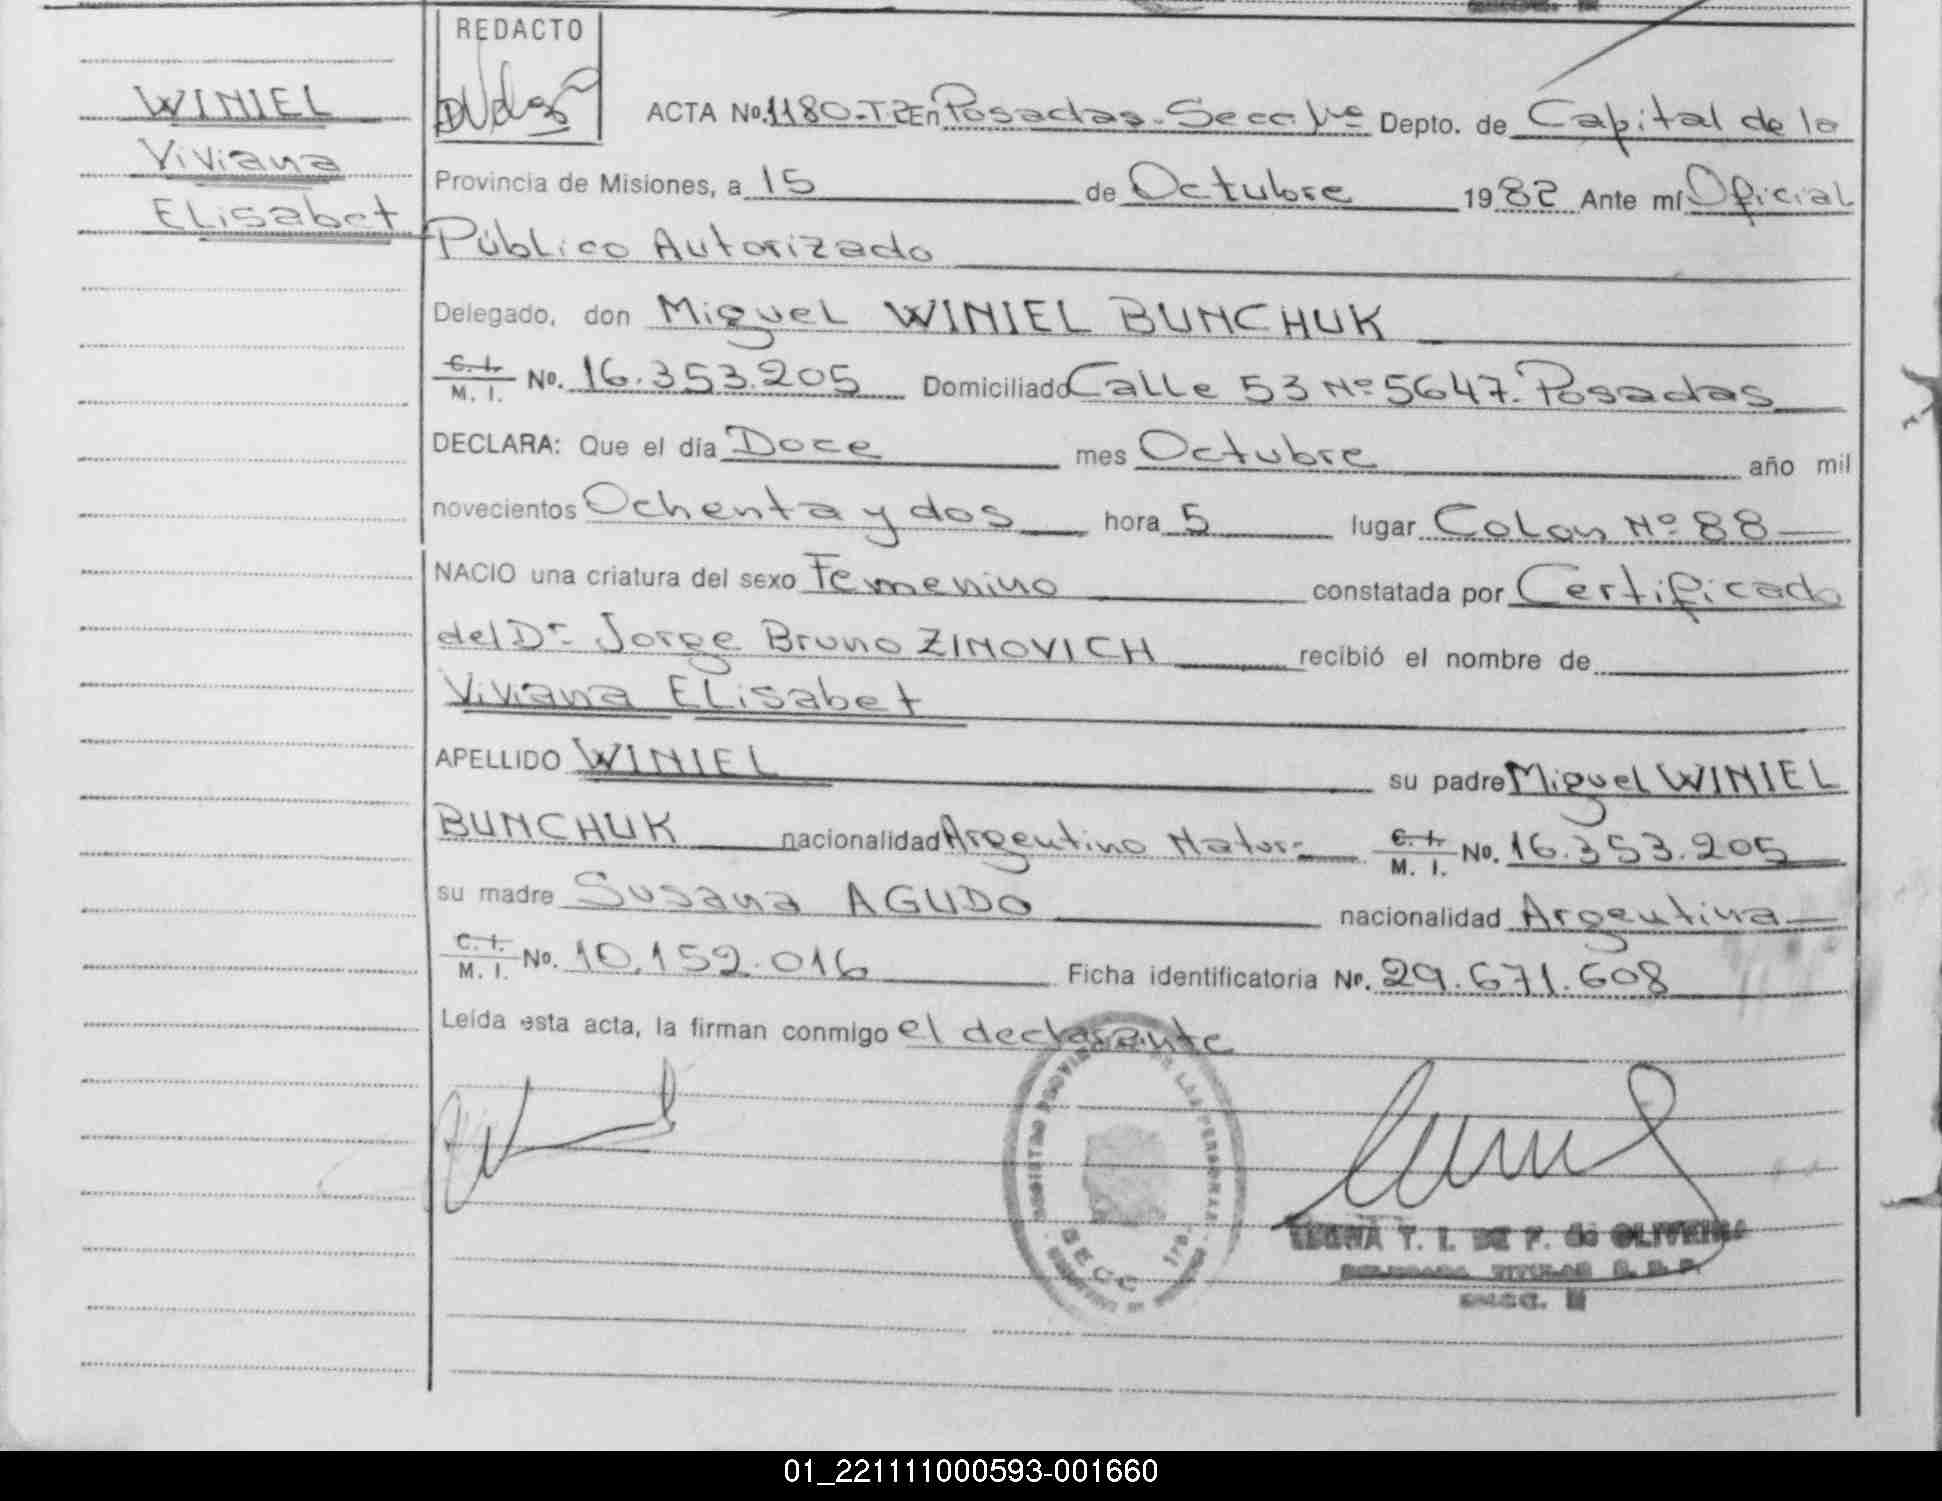 REDACTO
WINIEL
Viviana
Elisabet
ACTA No. 1180-T2 En Posadas-Secc 1ra Depto. de Capital de la
Provincia de Misiones, a 15 de Octubre 1982 Ante mí Oficial
Público Autorizado
Delegado, don Miguel WINIEL BUNCHUK
C. I. M. I. No. 16.353.205 Domiciliado Calle 53 Nº 5647. Posadas
DECLARA: Que el día Doce mes Octubre año mil
novecientos Ochenta y dos hora 5 lugar Colon Nº 88
NACIO una criatura del sexo Femenino constatada por Certificado
del Dr Jorge Bruno ZINOVICH recibió el nombre de
Viviana Elisabet
APELLIDO WINIEL su padre Miguel WINIEL
BUNCHUK nacionalidad Argentino Natur. C. I. M. I. No. 16.353.205
su madre Susana AGUDO nacionalidad Argentina
C. I. M. I. No. 10.152.016 Ficha identificatoria No. 29.671.608
Leída esta acta, la firman conmigo el declarante
REGISTRO PROVINCIAL DE LAS PERSONAS
SECC 1ra.
T. I. DE F. de OLIVEIRA
TITULAR
01_221111000593-001660